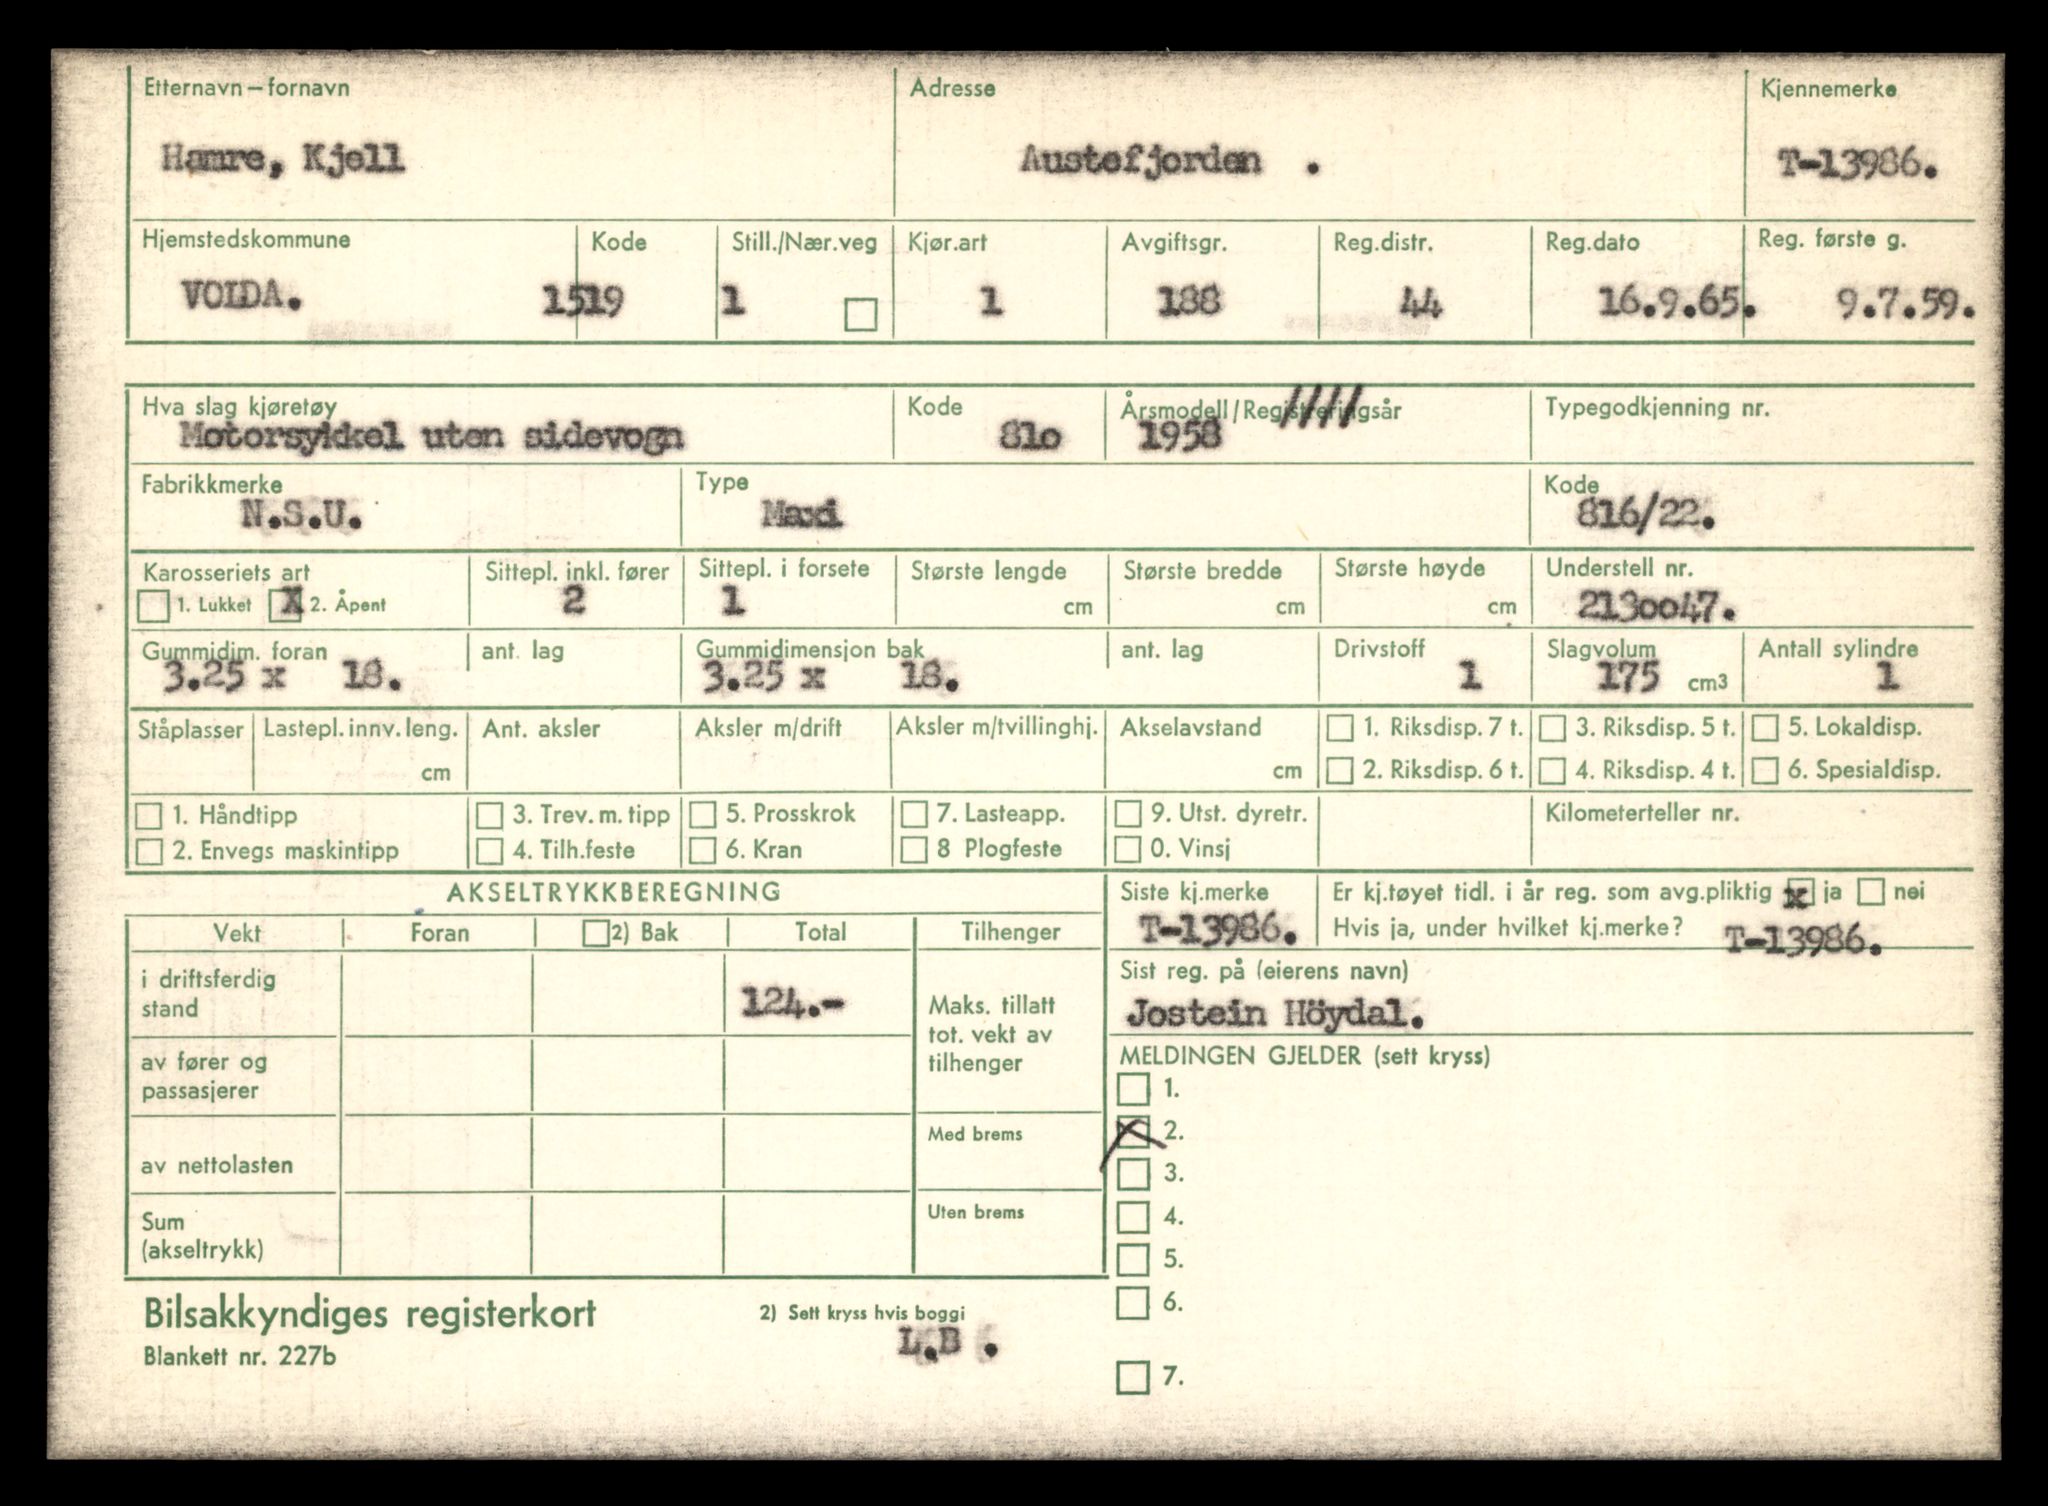 Etternavn – fornavn Adresse Kjennemerke
Hamre, Kjell Austefjorden . T-13986.
Hjemstedskommune Kode Still./Nær.veg Kjør.art Avgiftsgr. Reg.distr. Reg.dato Reg. første g.
VOLDA. 1519 1 1 188 44 16.9.65. 9.7.59.
Hva slag kjøretøy Kode Årsmodell/Registreringsår Typegodkjenning nr.
Motorsykkel uten sidevogn 81o 1958 ////
Fabrikkmerke Type Kode
N.S.U. Maxi 816/22.
Karosseriets art Sittepl. inkl. fører Sittepl. i forsete Største lengde Største bredde Største høyde Understell nr.
1. Lukket X 2. Åpent 2 1 cm cm cm 213oo47.
Gummidim. foran ant. lag Gummidimensjon bak ant. lag Drivstoff Slagvolum Antall sylindre
3.25 x 18. 3.25 x 18. 1 175 cm3 1
Ståplasser Lastepl. innv. leng. Ant. aksler Aksler m/drift Aksler m/tvillinghj. Akselavstand 1. Riksdisp. 7 t. 3. Riksdisp. 5 t. 5. Lokaldisp.
cm cm 2. Riksdisp. 6 t. 4. Riksdisp. 4 t. 6. Spesialdisp.
1. Håndtipp 3. Trev. m. tipp 5. Prosskrok 7. Lasteapp. 9. Utst. dyretr. Kilometerteller nr.
2. Envegs maskintipp 4. Tilh.feste 6. Kran 8 Plogfeste 0. Vinsj
AKSELTRYKKBEREGNING Siste kj.merke Er kj.tøyet tidl. i år reg. som avg.pliktig x ja nei
Vekt Foran 2) Bak Total Tilhenger T-13986. Hvis ja, under hvilket kj.merke? T-13986.
i driftsferdig stand 124.- Maks. tillatt tot. vekt av tilhenger
Sist reg. på (eierens navn)
Jostein Höydal.
av fører og passasjerer
MELDINGEN GJELDER (sett kryss)
1.
Med brems X 2.
av nettolasten 3.
Uten brems 4.
Sum (akseltrykk) 5.
6.
Bilsakkyndiges registerkort 2) Sett kryss hvis boggi
L.B .
Blankett nr. 227b 7.